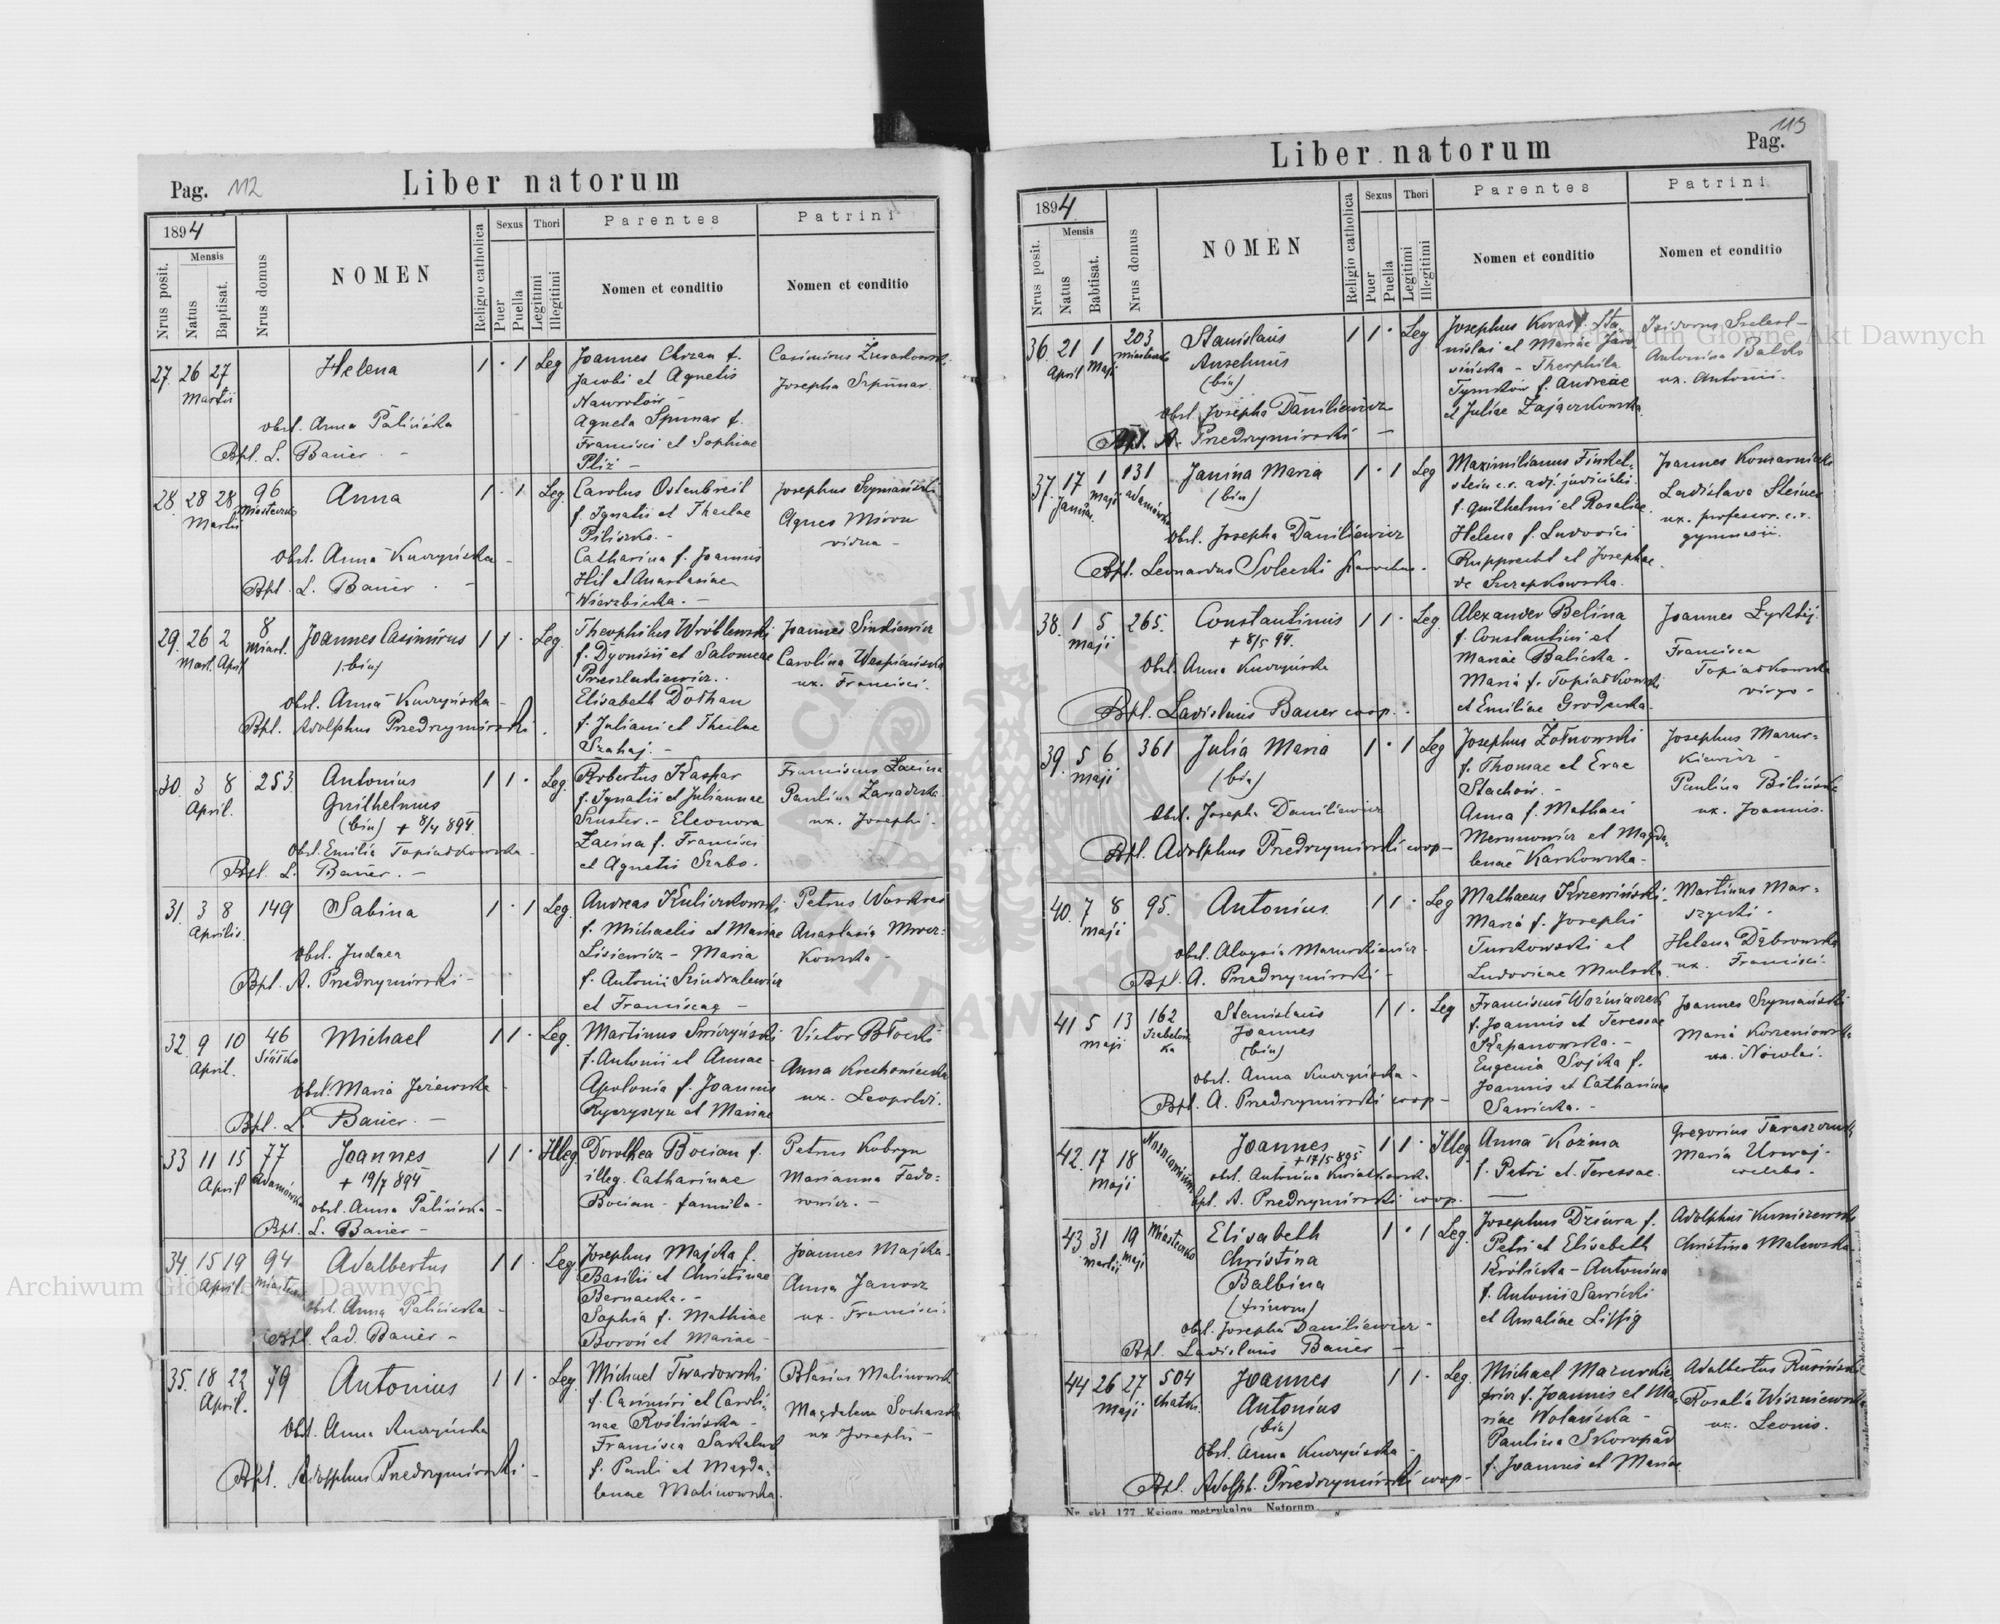 Pag. 112
Liber natorum
1894
Mensis
Nrus posit.
Natus
Baptisat.
Nrus domus
NOMEN
Religio catholica
Sexus
Puer
Puella
Thori
Legitimi
Illegitimi
Parentes
Nomen et conditio
Patrini
Nomen et conditio
27. 26 27 Martii
Helena
1 · 1 Leg
obst. Anna Palińska
Bpt. L. Bauer
Joannes Chrzan f.
Jacobi et Agnetis
Nawrotow
Agnela Spunar f.
Francisci et Sophiae
Pliz
Josepha Szpunar
28. 28 28 Martii
96
Miasteczko
Anna
1 · 1 Leg.
Obst. Anna Kuczyńska
Bpt. L. Bauer
Carolus Ostenbreit
f. Ignatii et Theclae
Catharina f. Joannis
Hil et Anastasiae
Wierzbicka
Josephus Szymański
Agnes
vidua
29. 26 2
Mart. April
8
Miast.
Joannes Casimirus
(bin)
1 1 · Leg.
Obst. Anna Kuczyńska
Bpt. Adolphus Przedrzymirski
Theophilus Wróblewski
f. Dyonisii et Salomeae
Elisabeth Dothan
f. Juliani et Theclae
Szahaj
Joannes Sinkiewicz
Carolina Wespiańska
ux. Francisci
30. 3 8
April.
253
Antonius
Guilhelmus
(bin) + 8/4 894
1 1 · Leg
Obst. Emilia Topiadkowska
Bpt. L. Bauer
Robertus Kaspar
f. Ignatii et Juliannae
Szuster. Eleonora
Zacina f. Francisci
et Agnetis Szabo.
Franciscus Zacina
Paulina Zasadzka
ux. Josephi
31. 3 8
Aprilis
149
Sabina
1 · 1 Leg.
Obst. Judaea
Bpt. A. Przedrzymirski
Andreas Kuliczkowski
f. Michaelis et Mariae
Lisiewicz - Maria
f. Antonii Szindralewicz
et Franciscae
Petrus Woskres
Anastasia
32. 9 10
April.
46
Michael
1 1 · Leg.
Obst. Maria Jeżewska
Bpt. L. Bauer
Martinus
f. Antonii et Annae
Apolonia f. Joannis
Ryczyszyn et Mariae
Victor Błocki
Anna
ux. Leopoldi.
33 11 15
April
77
Adamówka
Joannes
+ 19/7 894
1 1 · Illeg.
obst. Anna Palińska
Bpt. L. Bauer
Dorothea Bocian f.
illeg. Catharinae
Bocian - famula
Petrus Kobryn
Marianna Fedo-
rowicz
34. 15 19
April
94
Miasteczko
Adalbertus
1 1 · Leg.
Obst. Anna Palińska
Bpt. Lad. Bauer
Josephus Majcka f.
Basilii et Christinae
Bernacka
Sophia f. Mathiae
Boroń et Mariae
Joannes Majcka
Anna Janosz
ux. Francisci
35. 18 22
April.
79
Antonius
1 1 · Leg.
Obst. Anna Kuczyńska
Bpt. Adolphus Przedrzymirski
Michael Twardowski
f. Casimiri et Caroli-
nae Roślińska
Francisca
f. Pauli et Magda-
lenae Malinowska
Blasius Malinowski
Magdalena Sochacka
ux Josephi
119
Pag.
Liber natorum
1894
Mensis
Nrus posit.
Natus
Babtisat.
Nrus domus
NOMEN
Religio catholica
Sexus
Puer
Puella
Thori
Legitimi
Illegitimi
Parentes
Nomen et conditio
Patrini
Nomen et conditio
36. 21 1
April Maji
203
Miasteczko
Stanislaus
Anselmus
(bin)
1 1 · Leg
Obst. Josepha Daniliewicz
Bpt. A. Przedrzymirski
Josephus
nislai et Mariae
Theophila
f. Andreae
et Juliae Zajączkowska
Isidorus
Antonina
ux. Antonii.
37. 17 1
Januar. Maji
131
Adamówka
Janina Maria
(bin)
1 · 1 Leg
Obst. Josepha Daniliewicz
Bpt. Leonardus Solecki parochus.
Maximilianus Finkel-
stein c.r. adj. judicialis
f. Guilhelmi et Rosaliae
Helena f. Ludovici
Rupprecht et Josephae
de Szczepkowska.
Joannes Komarnicki
Ladislava Steiner
ux. professor. c.r.
gymnasii.
38. 1 5
Maji
265.
Constantinus
+ 8/5 94.
1 1 · Leg.
Obst. Anna Kuczyńska
Bpt. Ladislaus Bauer coop.
Alexander Belina
f. Constantini et
Mariae Balicka
Maria f. Topiadkowski
et Emiliae Grodzka
Joannes
Francisca
Topiadkowska
virgo
39. 5 6
Maji
361
Julia Maria
(bin)
1 · 1 Leg
Obst. Josepha Daniliewicz
Bpt. Adolphus Przedrzymirski coop
Josephus Żołnowski
f. Thomae et Evae
Stachow.
Anna f. Mathaei
Merunowicz et Magda-
lenae Karkowska
Josephus Mazur-
kiewicz
Paulina Bilińska
ux. Joannis.
40. 7 8
Maji
95.
Antonius
1 1 · Leg
obst. Aloysia Mazurkiewicz
Bpt. A. Przedrzymirski
Mathaeus Krzemiński
Maria f. Josephi
Turkowski et
Ludovicae Mulska
Martinus Mar-
szycki
Helena Dąbrowska
ux. Francisci
41 5 13
Maji
162
Stanislaus
Joannes
(bin)
1 1 · Leg
obst. Anna Kuczyńska
Bpt. A. Przedrzymirski coop
Franciscus Woźniaczek
f. Joannis et Teressae
Kapanowska
Eugenia Sojka f.
Joannis et Catharinae
Sawicka
Joannes Szymański
Maria Korzeniowska
ux. Nicolai.
42. 17 18
Maji
Nosocomium
Joannes
+ 17/5 895
1 1 · Illeg
obst. Antonina Kwiatkowska
Bpt. A. Przedrzymirski coop.
Anna Kozma
f. Petri et Teressae
Gregorius
Maria
coelebs
43 31 19
Martii Maji
Miasteczko
Elisabeth
Christina
Balbina
(trinom)
1 · 1 Leg.
obst. Josepha Daniliewicz
Bpt. Ladislaus Bauer
Josephus Dziura f.
Petri et Elisabeth
Królicka - Antonina
f. Antonii Sawicki
et Amaliae Lissig
Adolphus Kuniszewski
Christina Malewska
44 26 27
Maji
504
Chatki
Joannes
Antonius
(bin)
1 1 · Leg.
Obst. Anna Kuczyńska
Bpt. Adolph. Przedrzymirski coop
Michael Mazurkie-
wicz f. Joannis et Ma-
riae Wolańska
Paulina Skoropad
f. Joannis et Mariae
Adalbertus Rusiński
Rosalia Wiśniewska
ux. Leonis.
Nr. skł. 177. Księga metrykalna. Natorum
Archiwum Główne Akt Dawnych
Archiwum Główne Akt Dawnych